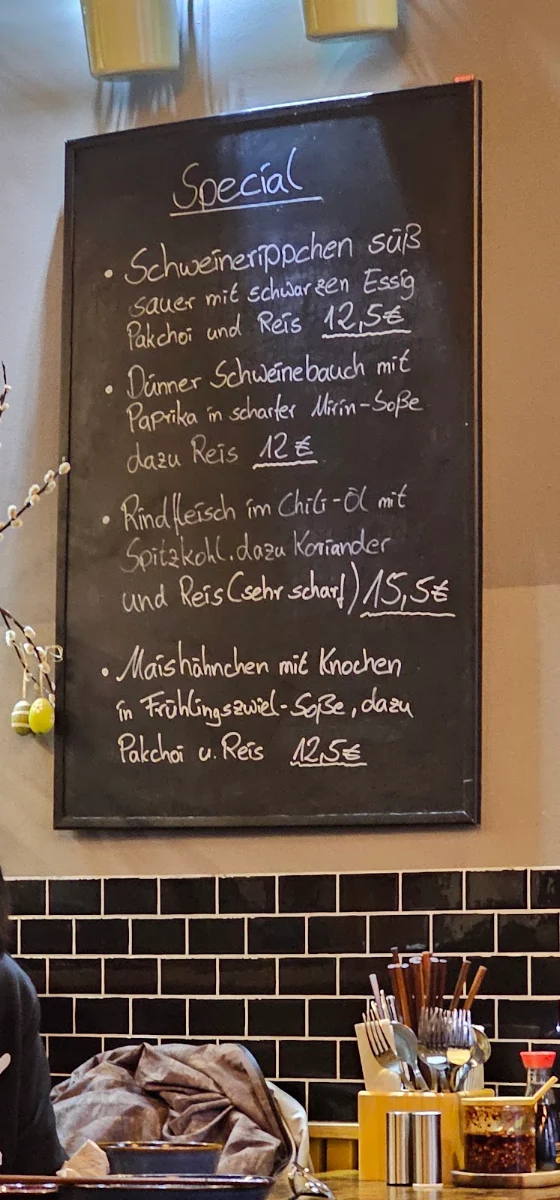 Special
• Schweinerippchen süß
sauer mit schwarzen Essig
Pakchoi und Reis 12,5€
• Dünner Schweinebauch mit
Paprika in scharfer Mirin-Soße
dazu Reis 12€
• Rindfleisch im Chili-Öl mit
Spitzkohl, dazu Koriander
und Reis (sehr scharf) 15,5€
• Maishähnchen mit Knochen
in Frühlingszwiel-Soße, dazu
Pakchoi u. Reis 12,5€